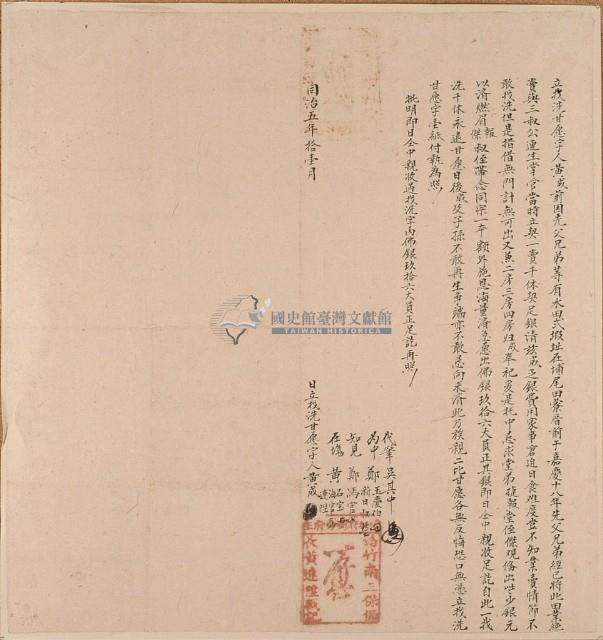 立找洗甘愿字人黃成前因先父兄弟等有水田弍塅址在埔尾田藔厝前于嘉慶十八年先父兄弟經已將此田業
賣與三叔公連生掌管當時立契一賣千休契足銀清玆成乏銀費用家事倉迫日食难度豈不知業賣情節不
敢找洗但是措借無門計無可出又兼二房三房四房归成奉祀爰是托中忌求堂弟捷報堂侄傑現俻出些少銀元
以濟燃眉報傑叔侄等念同宗一本額外施恩滴量濟急愿出佛銀玖拾六大員正其銀即日仝中親收足訖自此一找
洗千休永遠甘愿日後成及子孫不敢再生事端亦不敢忌向求濟此乃族親二比甘愿各無反悔恐口無憑立找洗
甘愿字壹紙付執為照
批明即日仝中親收過找洗字內佛銀玖拾六大員正足訖再照
代筆吳其中
為中鄭
知見鄭馮官
在塲黃
同治五年拾壹月 日立找洗甘愿字人黃成
國史館臺灣文獻館
TAIWAN HISTORICA